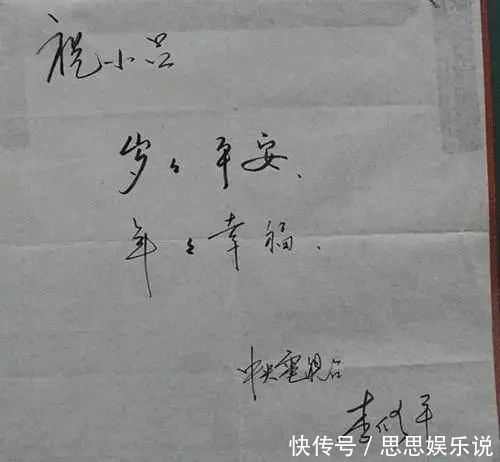 祝小
岁々平安、
年々幸福、
中央電視台
李修平
快传号 / 思思娱乐说